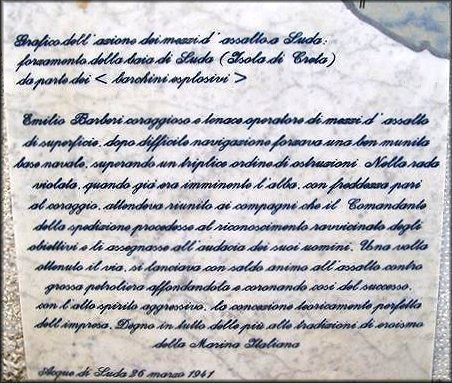 Grafico dell'azione dei mezzi d'assalto a Suda:
forzamento della baia di Suda (Isola di Creta)
da parte dei < barchini esplosivi >
Emilio Barberi coraggioso e tenace operatore di mezzi d'assalto
di superficie, dopo difficile navigazione forzava una ben munita
base navale, superando un triplice ordine di ostruzioni Nella rada
violata, quando già era imminente l'alba, con freddezza pari
al coraggio, attendeva riunito ai compagni che il Comandante
della spedizione procedesse al riconoscimento ravvicinato degli
obiettivi e li assegnasse all'audacia dei suoi uomini. Una volta
ottenuto il via, si lanciava con saldo animo all'assalto contro
grossa petroliera affondandola e coronando così del successo,
con l'alto spirito aggressivo, la concezione teoricamente perfetta
dell'impresa. Degno in tutto delle più alte tradizioni di eroismo
della Marina Italiana
Acque di Suda 26 marzo 1941